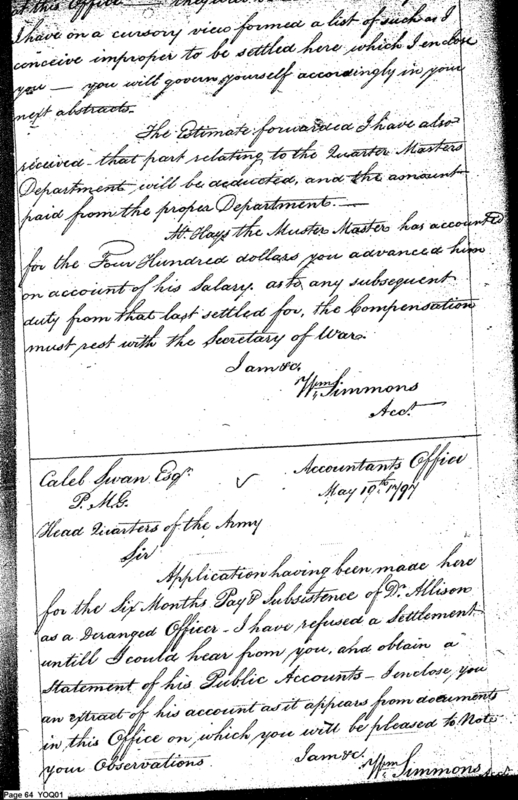 at this Office
I have on a cursory view formed a list of such as I
conceive improper to be settled here which I enclose
you — you will govern yourself accordingly in your
next abstracts.
The Estimate forwarded I have also
received – that part relating to the Quarter Masters
Department will be deducted, and the amount
paid from the proper Department. —
Hays the Muster Master has accounted
for the Four Hundred dollars you advanced him
on account of his Salary. as to any subsequent
duty from that last settled for, the Compensation
must rest with the Secretary of War.
I am &c.
Wm Simmons
Acct.
Caleb Swan Esqr. Accountants Office
P.M.G. May 19th 1797
Head Quarters of the Army
Sir
Application having been made here
for the Six Months Pay & Subsistence of Dr. Allison
as a Deranged Officer – I have refused a Settlement
untill I could hear from you, and obtain a
Statement of his Public Accounts – I enclose, you
an extract of his account as it appears from documents
in this Office on which you will be pleased to Note
your Observations I am &c.
Wm Simmons
Acct.
Page 64 YOQ01